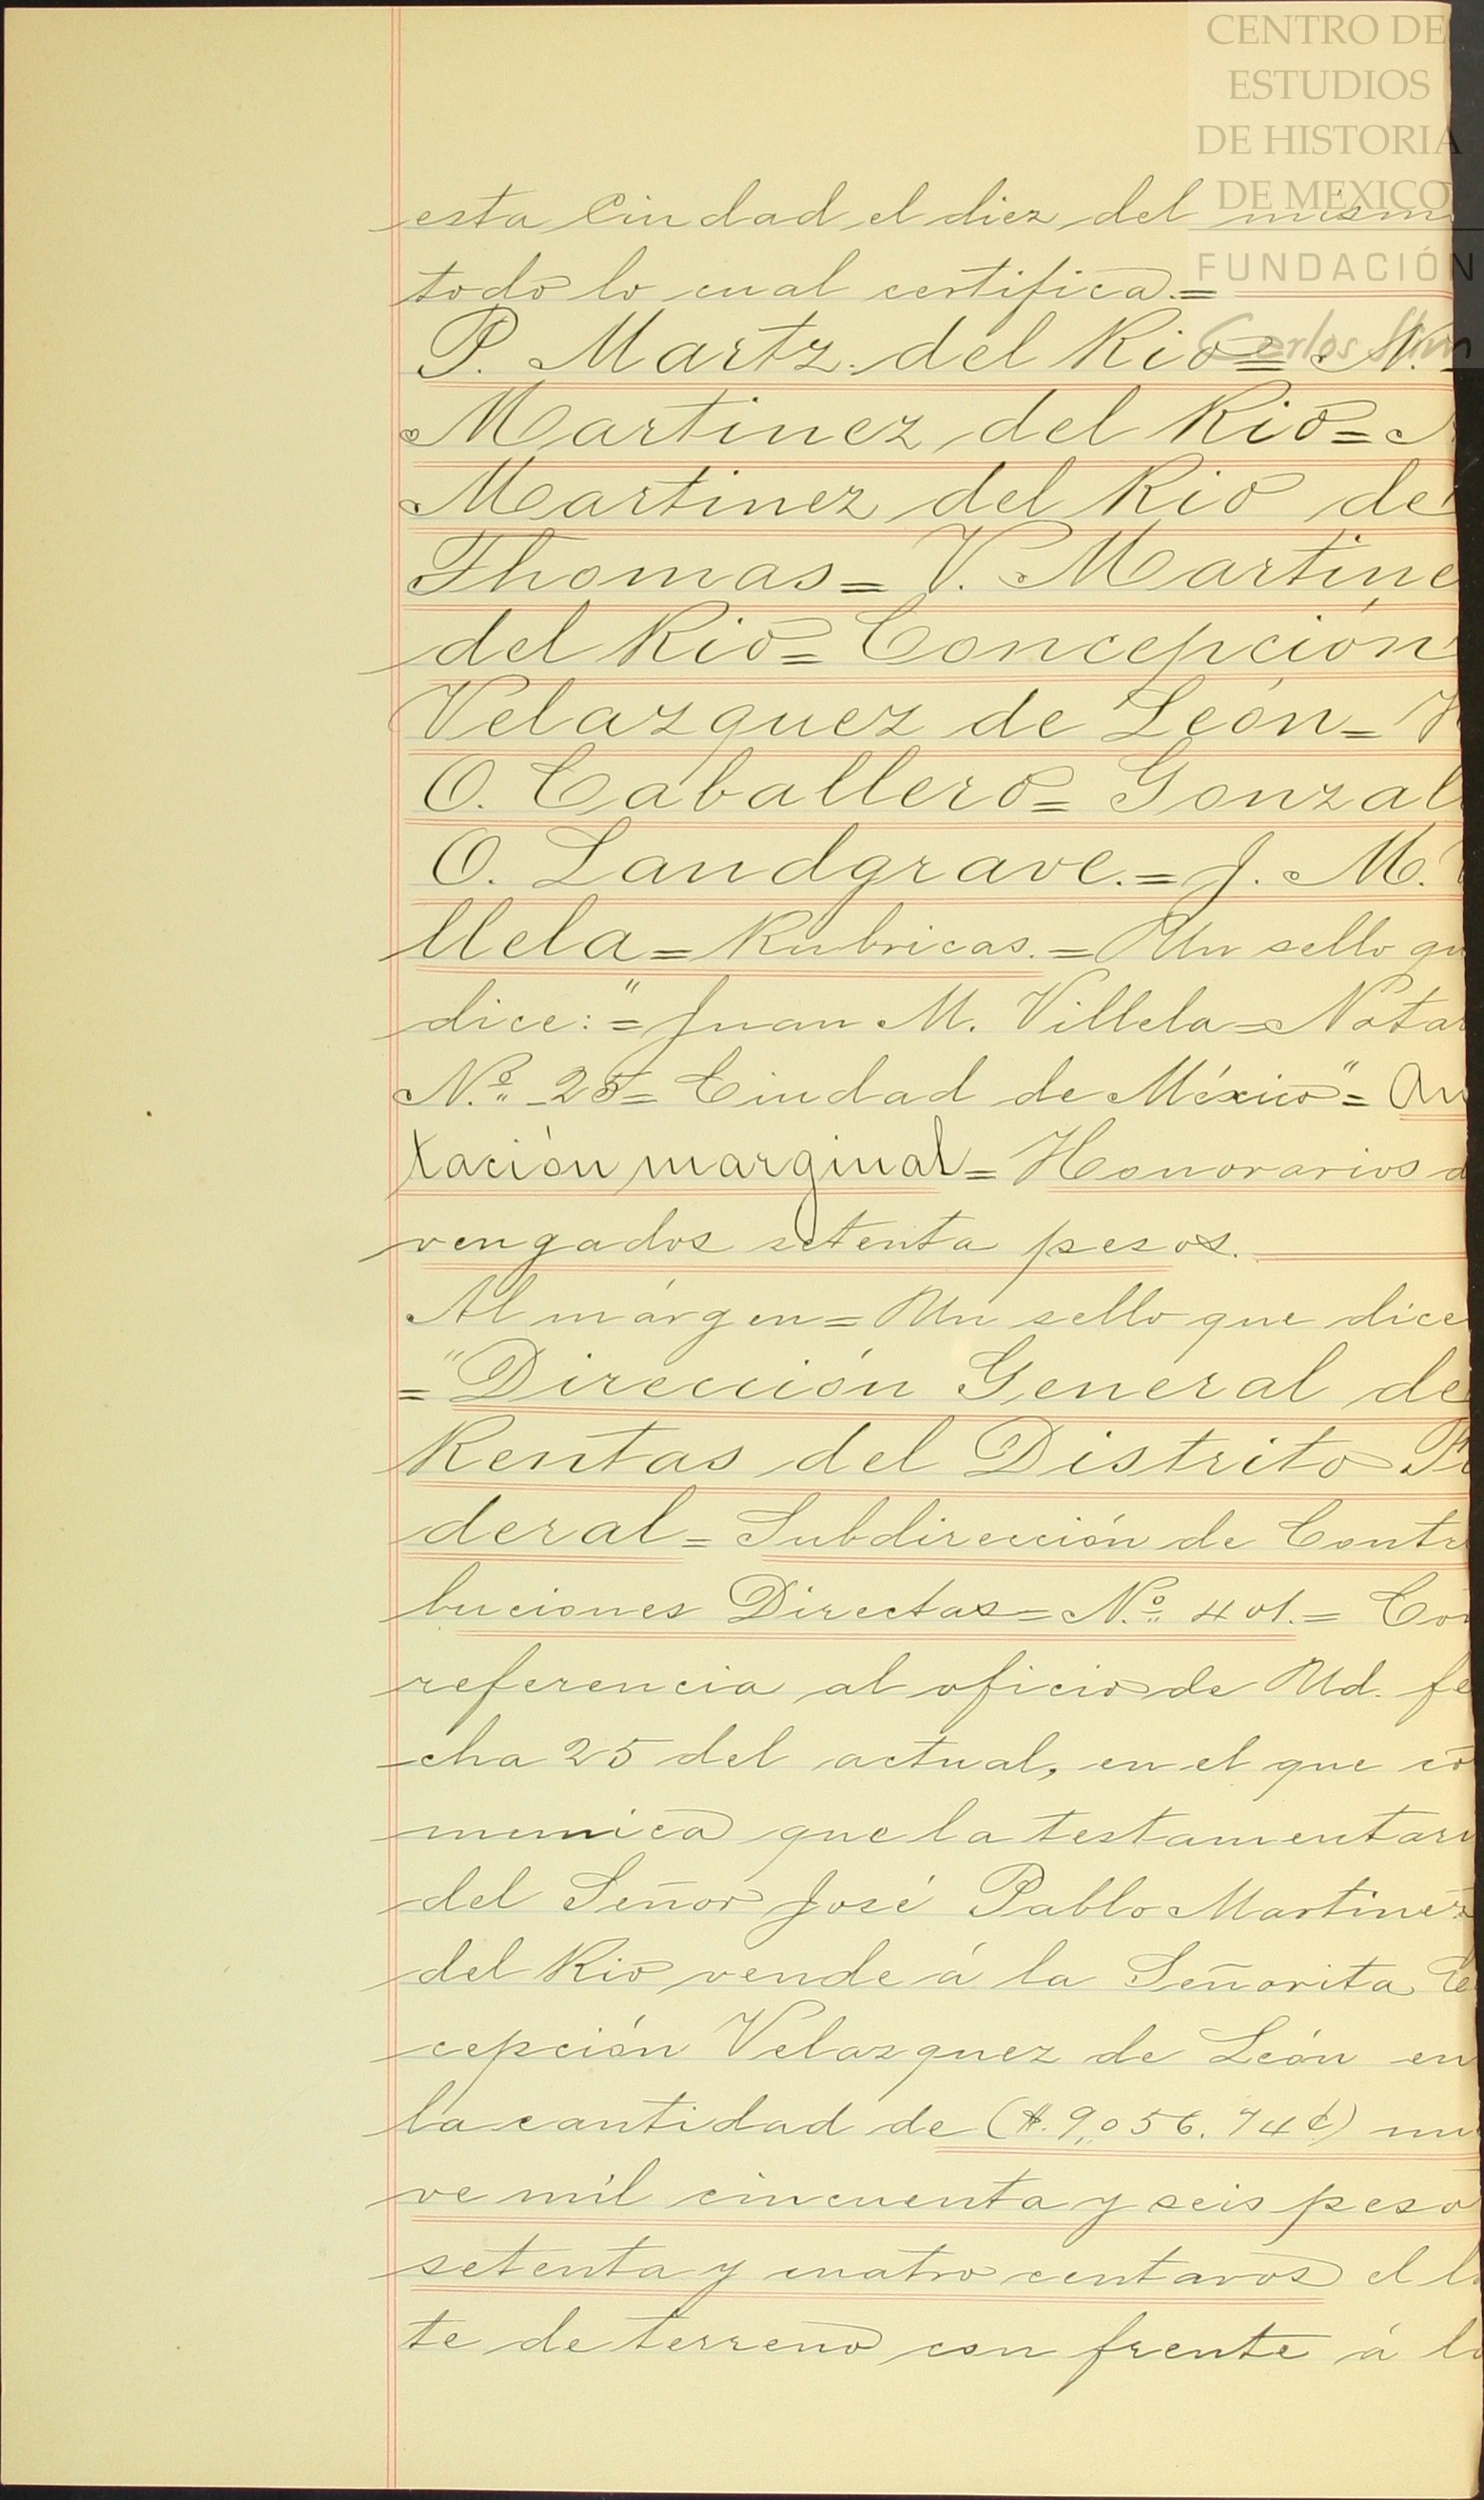 CENTRO DE
ESTUDIOS
DE HISTORIA
DE MEXICO
FUNDACIÓN
Carlos Slim
esta Ciudad el diez del mism
todo lo cual certifica.=
P. Martz. del Rio= N.
Martinez del Rio=
Martinez del Rio de
Thomas= V. Martine
del Rio= Concepción
Velazquez de León=
O. Caballero= Gonzal
O. Landgrave.= J. M.
llela= Rubricas.= Un sello qu
dice:="Juan M. Villela= Notar
N.º 25= Ciudad de México"= An
tación marginal= Honorarios d
vengados setenta pesos.
Al márgen= Un sello que dice
="Dirección General de
Rentas del Distrito Fe
deral= Subdirección de Contri
buciones Directas= N.º 401.= Con
referencia al oficio de Ud. fe
cha 25 del actual, en el que co
munica que la testamentari
del Señor José Pablo Martinez
del Rio vende á la Señorita
cepción Velazquez de León en
la cantidad de ($.9,056.74¢) nu
ve mil cincuenta y seis peso
setenta y cuatro centavos el l
te de terreno con frente á l